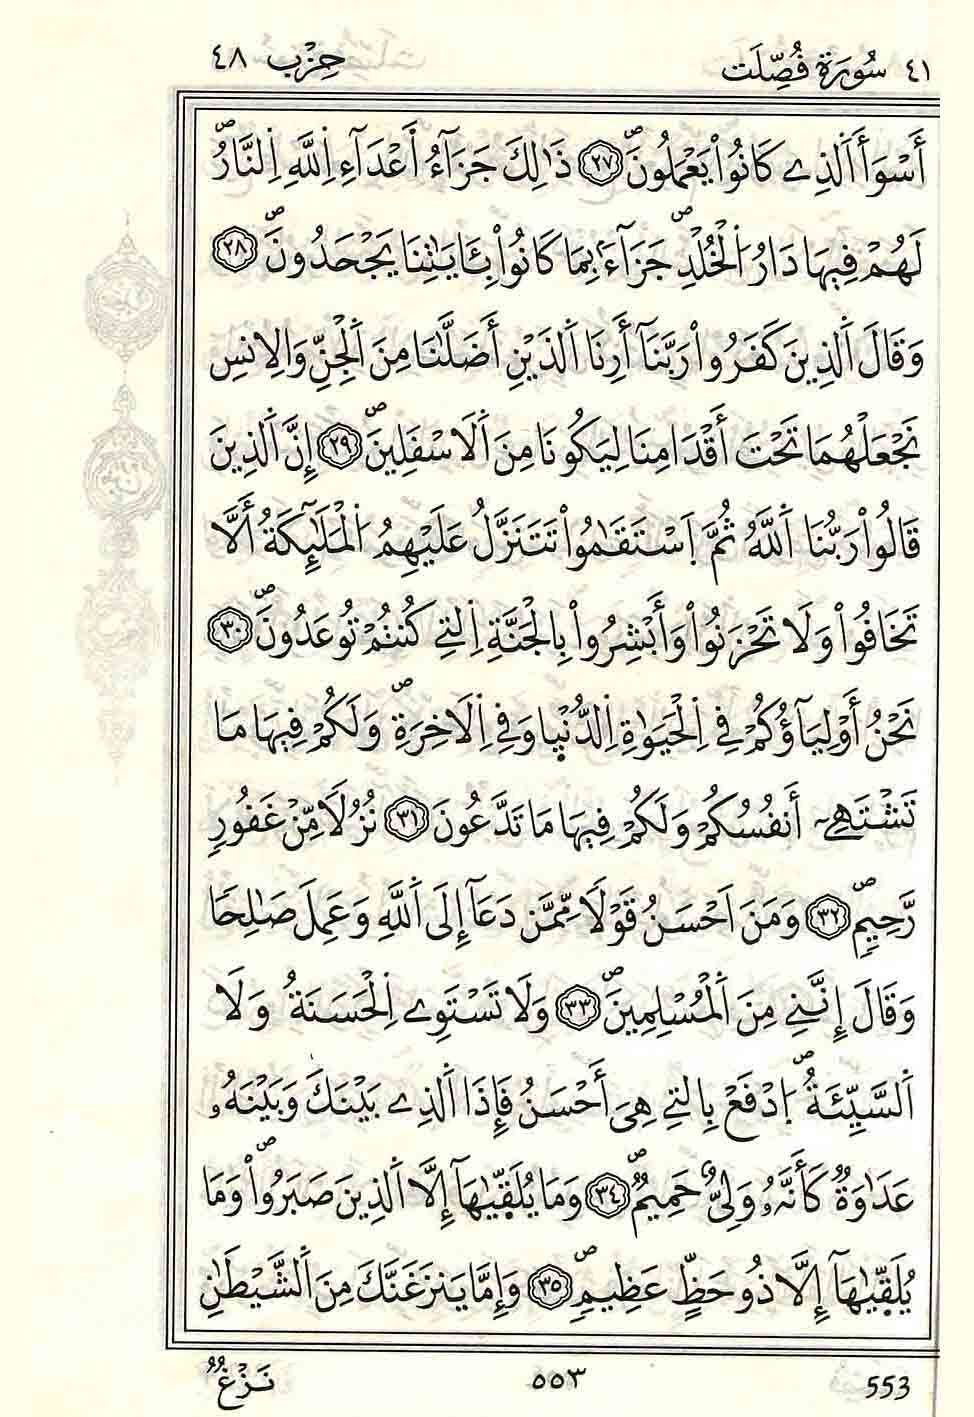 ٤١ سُورَةُ فُصِّلَتْ حِزْب ٤٨
أَسْوَأَ اَلذِے كَانُواْ يَعْمَلُونَۖ ٢٧ ذَٰلِكَ جَزَآءُ اَ۬عْدَآءِ اِ۬للَّهِ اِ۬لنَّارُۖ
لَهُمْ فِيهَا دَارُ اُ۬لْخُلْدِۖ جَزَآءَۢ بِمَا كَانُواْ بِـَٔايَٰتِنَا يَجْحَدُونَۖ ٢٨
وَقَالَ اَ۬لذِينَ كَفَرُواْ رَبَّنَآ أَرِنَا اَ۬لذَيْنِ أَضَلَّٰنَا مِنَ اَ۬لْجِنِّ وَالِانسِ
نَجْعَلْهُمَا تَحْتَ أَقْدَامِنَا لِيَكُونَا مِنَ اَ۬لَاسْفَلِينَۖ ٢٩ إِنَّ اَ۬لذِينَ
قَالُواْ رَبُّنَا اَ۬للَّهُ ثُمَّ اَ۪سْتَقَٰمُواْ تَتَنَزَّلُ عَلَيْهِمُ اُ۬لْمَلَٰٓئِكَةُ أَلَّا
تَخَافُواْ وَلَا تَحْزَنُواْ وَأَبْشِرُواْ بِالْجَنَّةِ اِ۬لتِے كُنتُمْ تُوعَدُونَۖ ٣٠
نَحْنُ أَوْلِيَآؤُكُمْ فِے اِ۬لْحَيَوٰةِ اِ۬لدُّنْي۪ا وَفِے اِ۬لَاخِرَةِۖ وَلَكُمْ فِيهَا مَا
تَشْتَهِےٓ أَنفُسُكُمْ وَلَكُمْ فِيهَا مَا تَدَّعُونَ ٣١ نُزُلاٗ مِّنْ غَفُورٖ
رَّحِيمٖۖ ٣٢ وَمَنَ اَحْسَنُ قَوْلاٗ مِّمَّن دَعَآ إِلَى اَ۬للَّهِ وَعَمِلَ صَٰلِحاٗ
وَقَالَ إِنَّنِے مِنَ اَ۬لْمُسْلِمِينَۖ ٣٣ وَلَا تَسْتَوِے اِ۬لْحَسَنَةُ وَلَا
اَ۬لسَّيِّئَةُۖ اُ۪دْفَعْ بِالتِے هِيَ أَحْسَنُ فَإِذَا اَ۬لذِے بَيْنَكَ وَبَيْنَهُۥ
عَدَٰوَةٞ كَأَنَّهُۥ وَلِيٌّ حَمِيمٞۖ ٣٤ وَمَا يُلَقّ۪ىٰهَآ إِلَّا اَ۬لذِينَ صَبَرُواْۖ وَمَا
يُلَقّ۪ىٰهَآ إِلَّا ذُو حَظٍّ عَظِيمٖۖ ٣٥ وَإِمَّا يَنزَغَنَّكَ مِنَ اَ۬لشَّيْطَٰنِ
نَزْغٞ ٥٥٣ 553